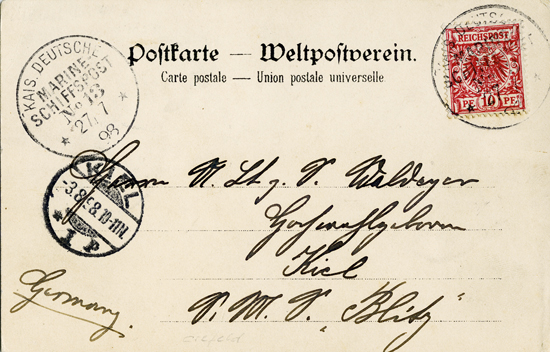 Postkarte — Weltpostverein.
Carte postale — Union postale universelle
KAIS. DEUTSCHE
MARINE-
SCHIFFSPOST
No 13
27/7
98
REICHSPOST
10
PF
KIEL
3.8.98.10-11N.
1 P
Herrn
Waldeyer
Hochwohlgeboren
Kiel
S. M. S. „Blitz"
Germany.